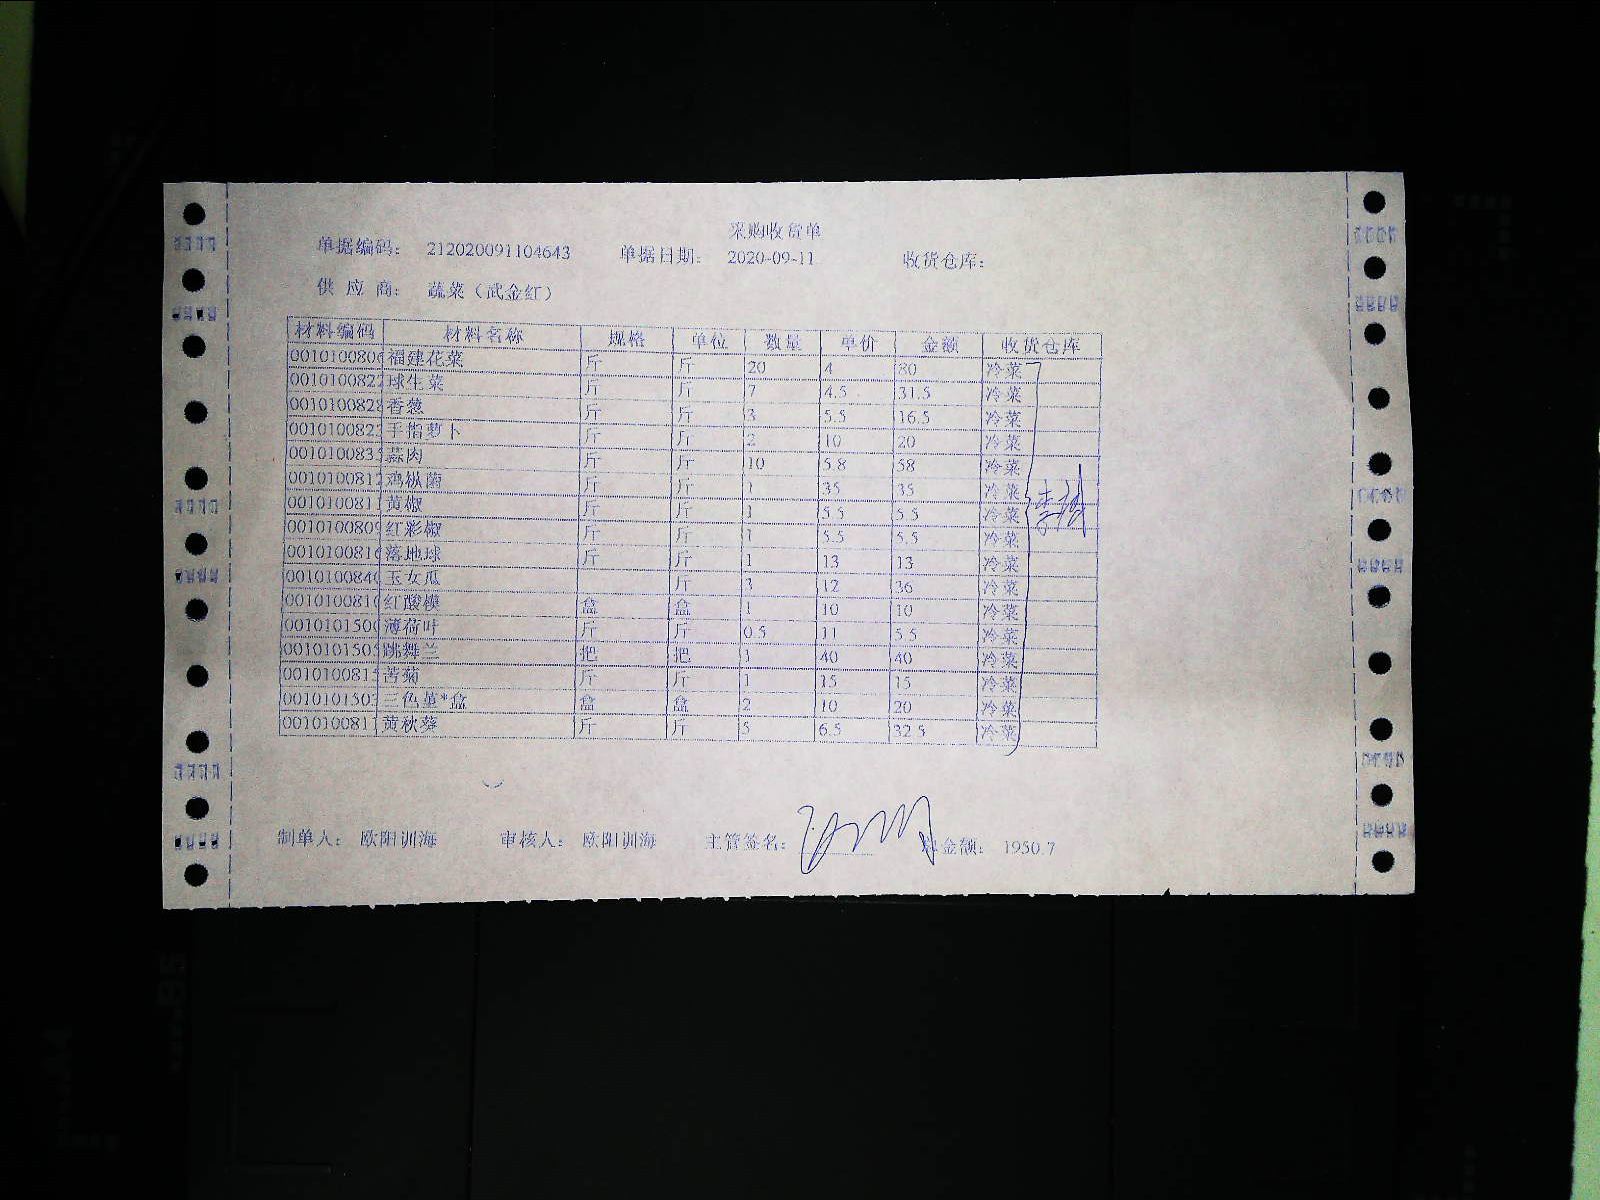 采购收货单
单据编码： 212020091104643 单据日期： 2020-09-11 收货仓库：
供 应 商： 蔬菜（武金红）
材料编码 材料名称 规格 单位 数量 单价 金额 收货仓库
0010100806 福建花菜 斤 斤 20 4 80 冷菜
0010100822 球生菜 斤 斤 7 4.5 31.5 冷菜
0010100828 香葱 斤 斤 3 5.5 16.5 冷菜
001010082 手指萝卜 斤 斤 2 10 20 冷菜
001010083 蒜肉 斤 斤 10 5.8 58 冷菜
0010100812 鸡枞菌 斤 斤 1 35 35 冷菜
001010081 黄椒 斤 斤 1 5.5 5.5 冷菜
0010100809 红彩椒 斤 斤 1 5.5 5.5 冷菜
0010100816 落地球 斤 斤 1 13 13 冷菜
0010100840 玉女瓜 斤 3 12 36 冷菜
0010100810 红酸模 盒 盒 1 10 10 冷菜
0010101500 薄荷叶 斤 斤 0.5 11 5.5 冷菜
0010101505 跳舞兰 把 把 1 40 40 冷菜
001010081 苦菊 斤 斤 1 15 15 冷菜
001010150 三色堇*盒 盒 盒 2 10 20 冷菜
001010081 黄秋葵 斤 斤 5 6.5 32.5 冷菜
制单人： 欧阳训海 审核人： 欧阳训海 主管签名： 总金额： 1950.7